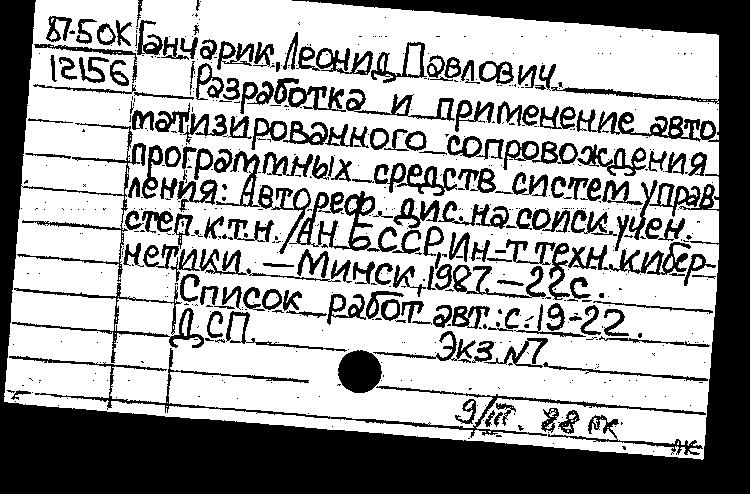 87-50К Ганчарик, Леонид Павлович.
12156
Разработка и применение авто-
матизированного сопровождения
программных средств систем управ-
ления: Автореф. дис. на соиск. учен.
степ. к.т.н. / АН БССР, Ин-т техн. кибер-
нетики. — Минск, 1987. — 22 с.
Список работ авт.: с. 19-22.
ДСП.
Экз. №7.
9/III. 88 пк